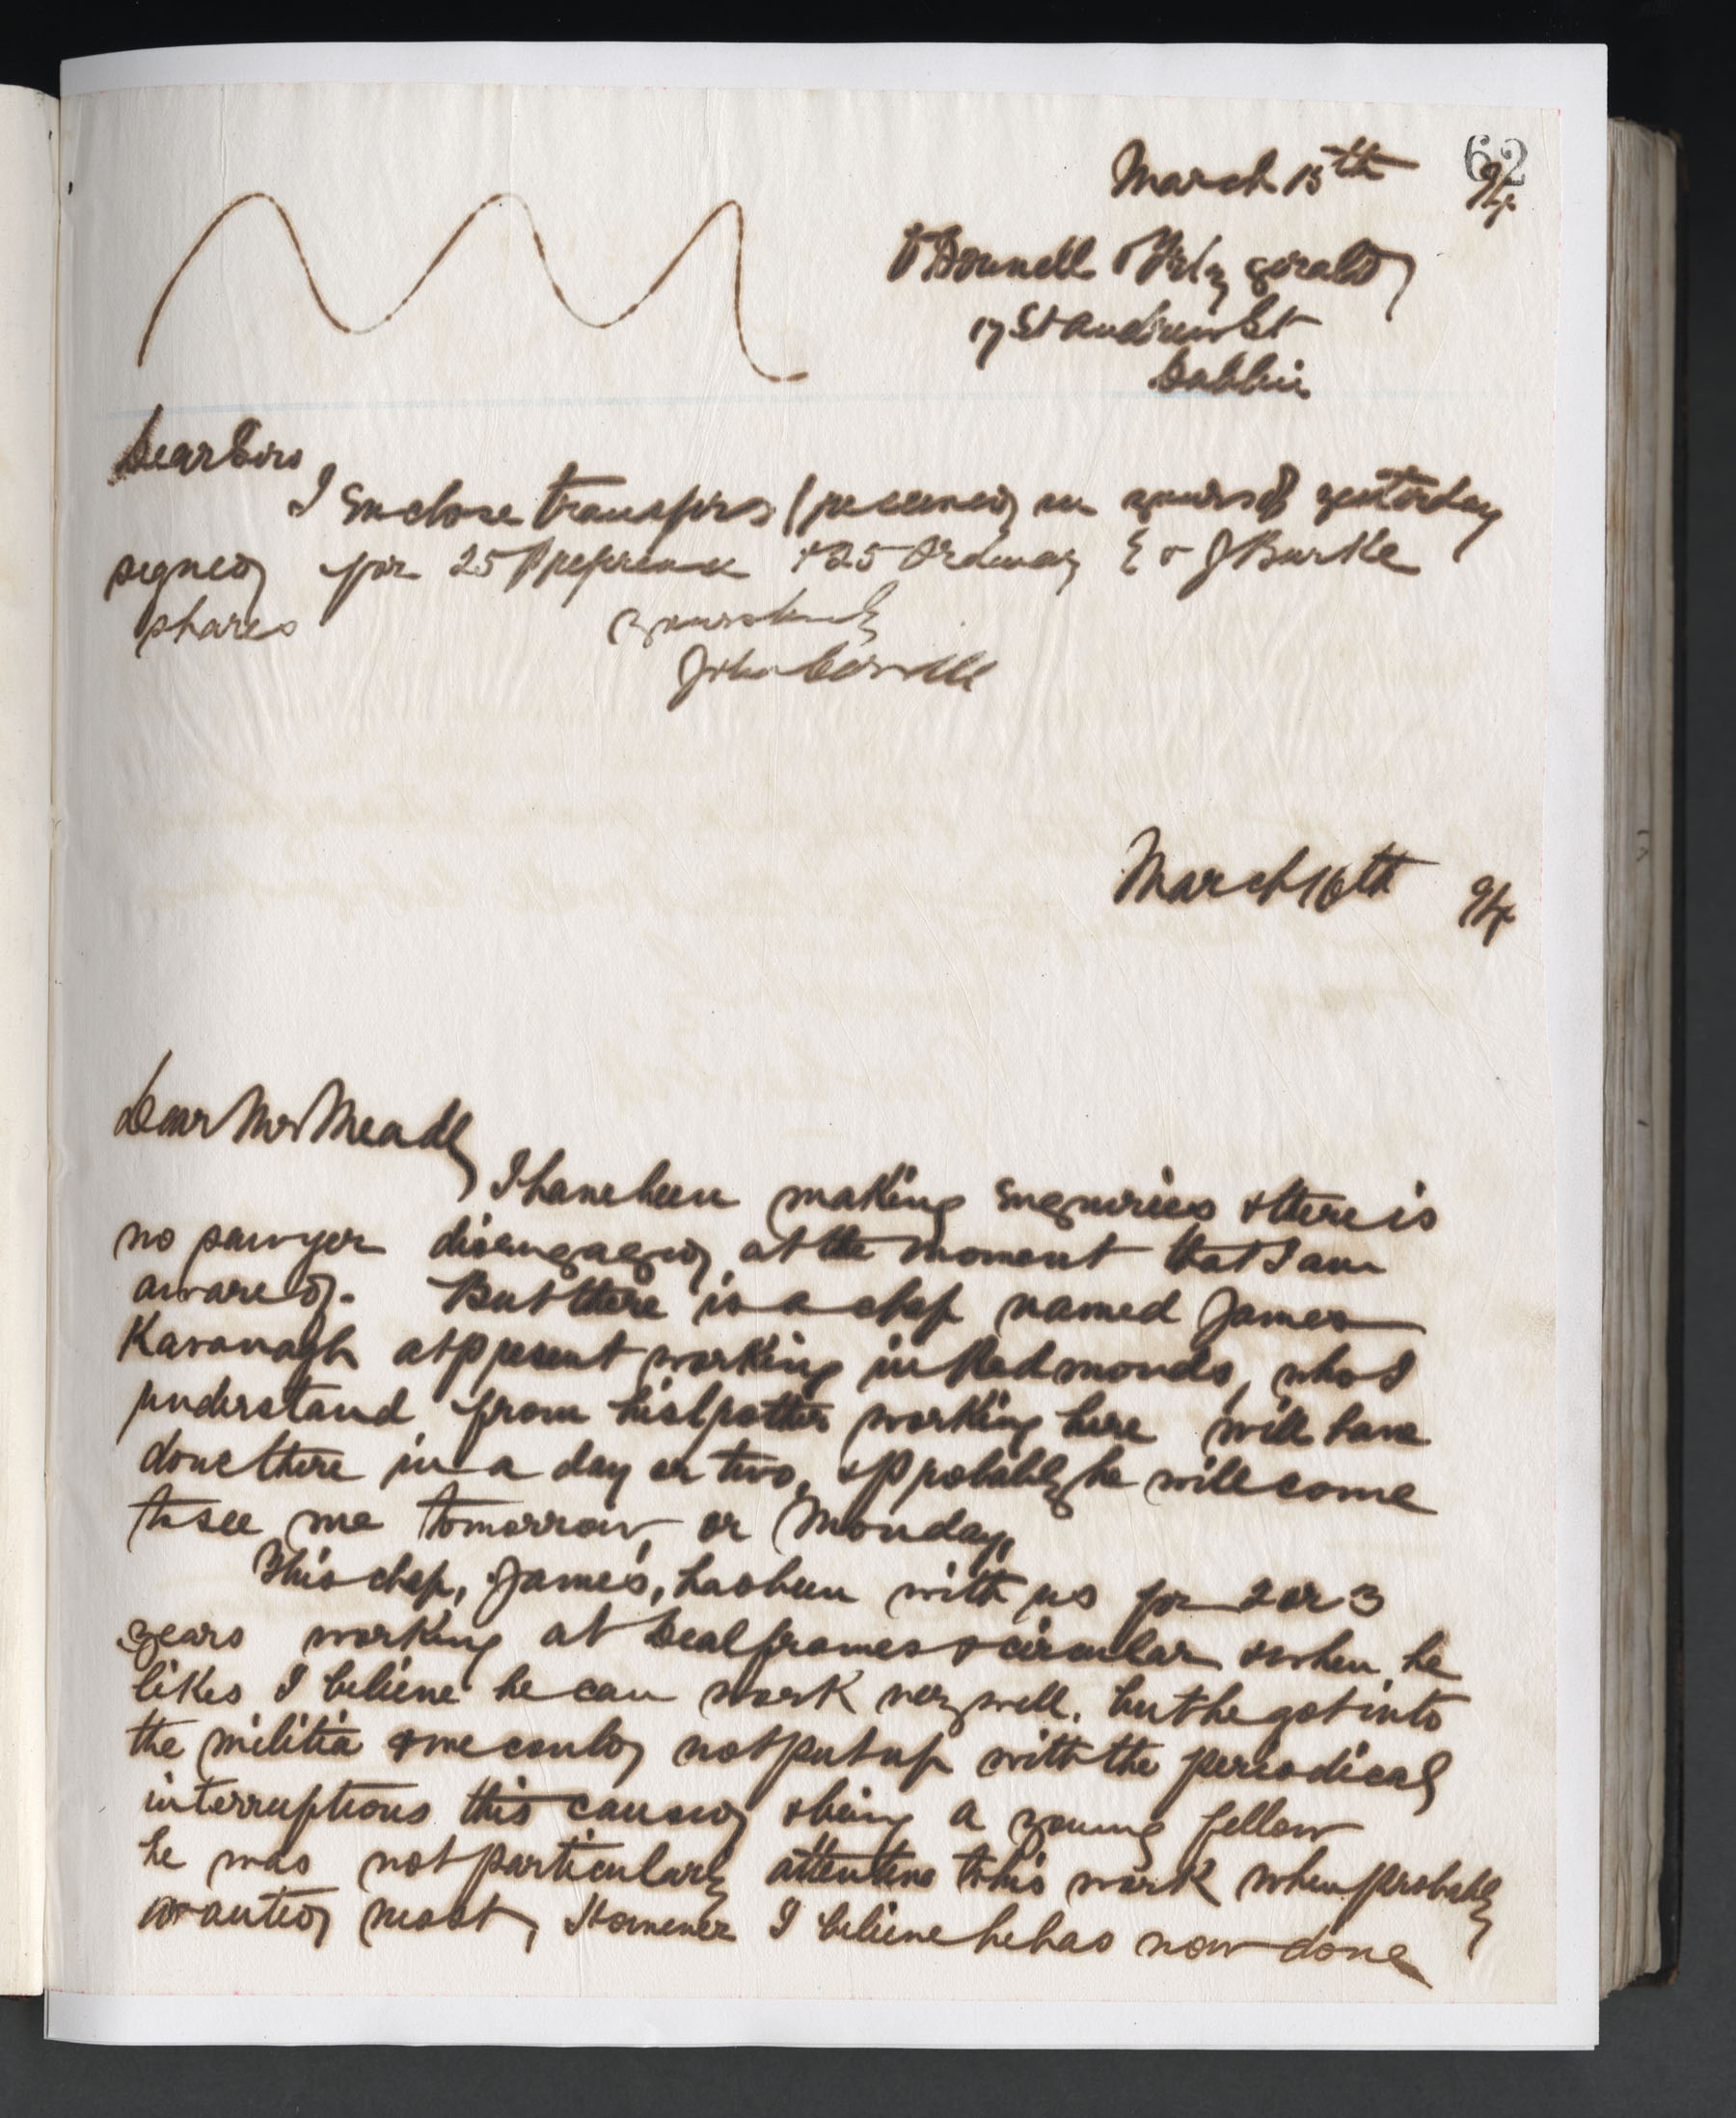 62
March 15th 94
O'Donnell & Fitzgerald
17 St Andrew St
Dublin
Dear Sirs
I enclose transfers (received in yours of yesterday
signed for 25 Preference & 25 Ordinary E & J Burke
shares
yours truly
John
March 16th 94
Dear Mr Meade,
I have been making enquiries & there is
no sawyer disengaged at the moment that I am
aware of. But there is a chap named James
Kavanagh at present working in Redmonds, who I
understand from his father working here will have
done there in a day or two, & probably he will come
to see me tomorrow, or Monday,
This chap, James, has been with us for 2 or 3
years working at Deal frames & circular & when he
likes I believe he can work very well. but he got into
the militia & we could not put up with the periodical
interruptions this caused & being a young fellow
he was not particularly attentive to his work when probably
wanted most, However I believe he has now done